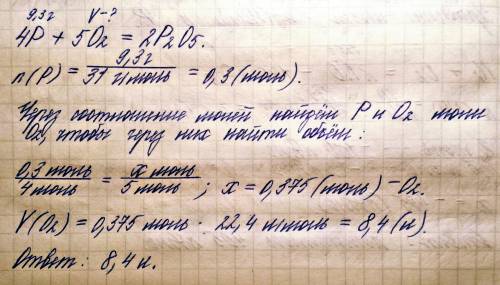 9,3г V-?
4P + 5O2 = 2P2O5.
n(P) = 9,3г / 31 г/моль = 0,3 (моль).
Через соотношение молей найдём P и O2 моли
O2, чтобы через них найти объём:
0,3 моль / 4 моль = x моль / 5 моль ; x = 0,375 (моль) - O2.
V(O2) = 0,375 моль · 22,4 л/моль = 8,4 (л).
Ответ: 8,4 л.